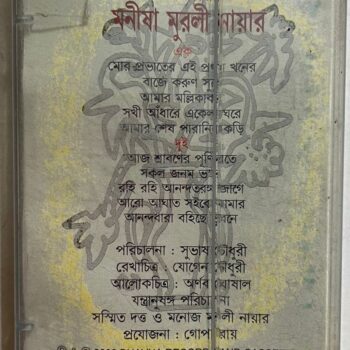 মনীষা মুরলী নায়ার
এক
মোর প্রভাতের এই প্রথম খনের
বাজে করুণ সুরে
আমার মল্লিকাবনে
সখী আঁধারে একেলা ঘরে
আমার শেষ পারানির কড়ি
দুই
আজ শ্রাবণের পূর্ণিমাতে
সকল জনম ভরে
রহি রহি আনন্দতরঙ্গ জাগে
আরো আঘাত সইবে আমার
আনন্দধারা বহিছে ভুবনে
পরিচালনা : সুভাষ চৌধুরী
রেখাচিত্র : যোগেন চৌধুরী
আলোকচিত্র : অর্ণব ঘোষাল
যন্ত্রানুষঙ্গ পরিচালনা
সম্মিত দত্ত ও মনোজ মুরলী নায়ার
প্রযোজনা : গোপা রায়